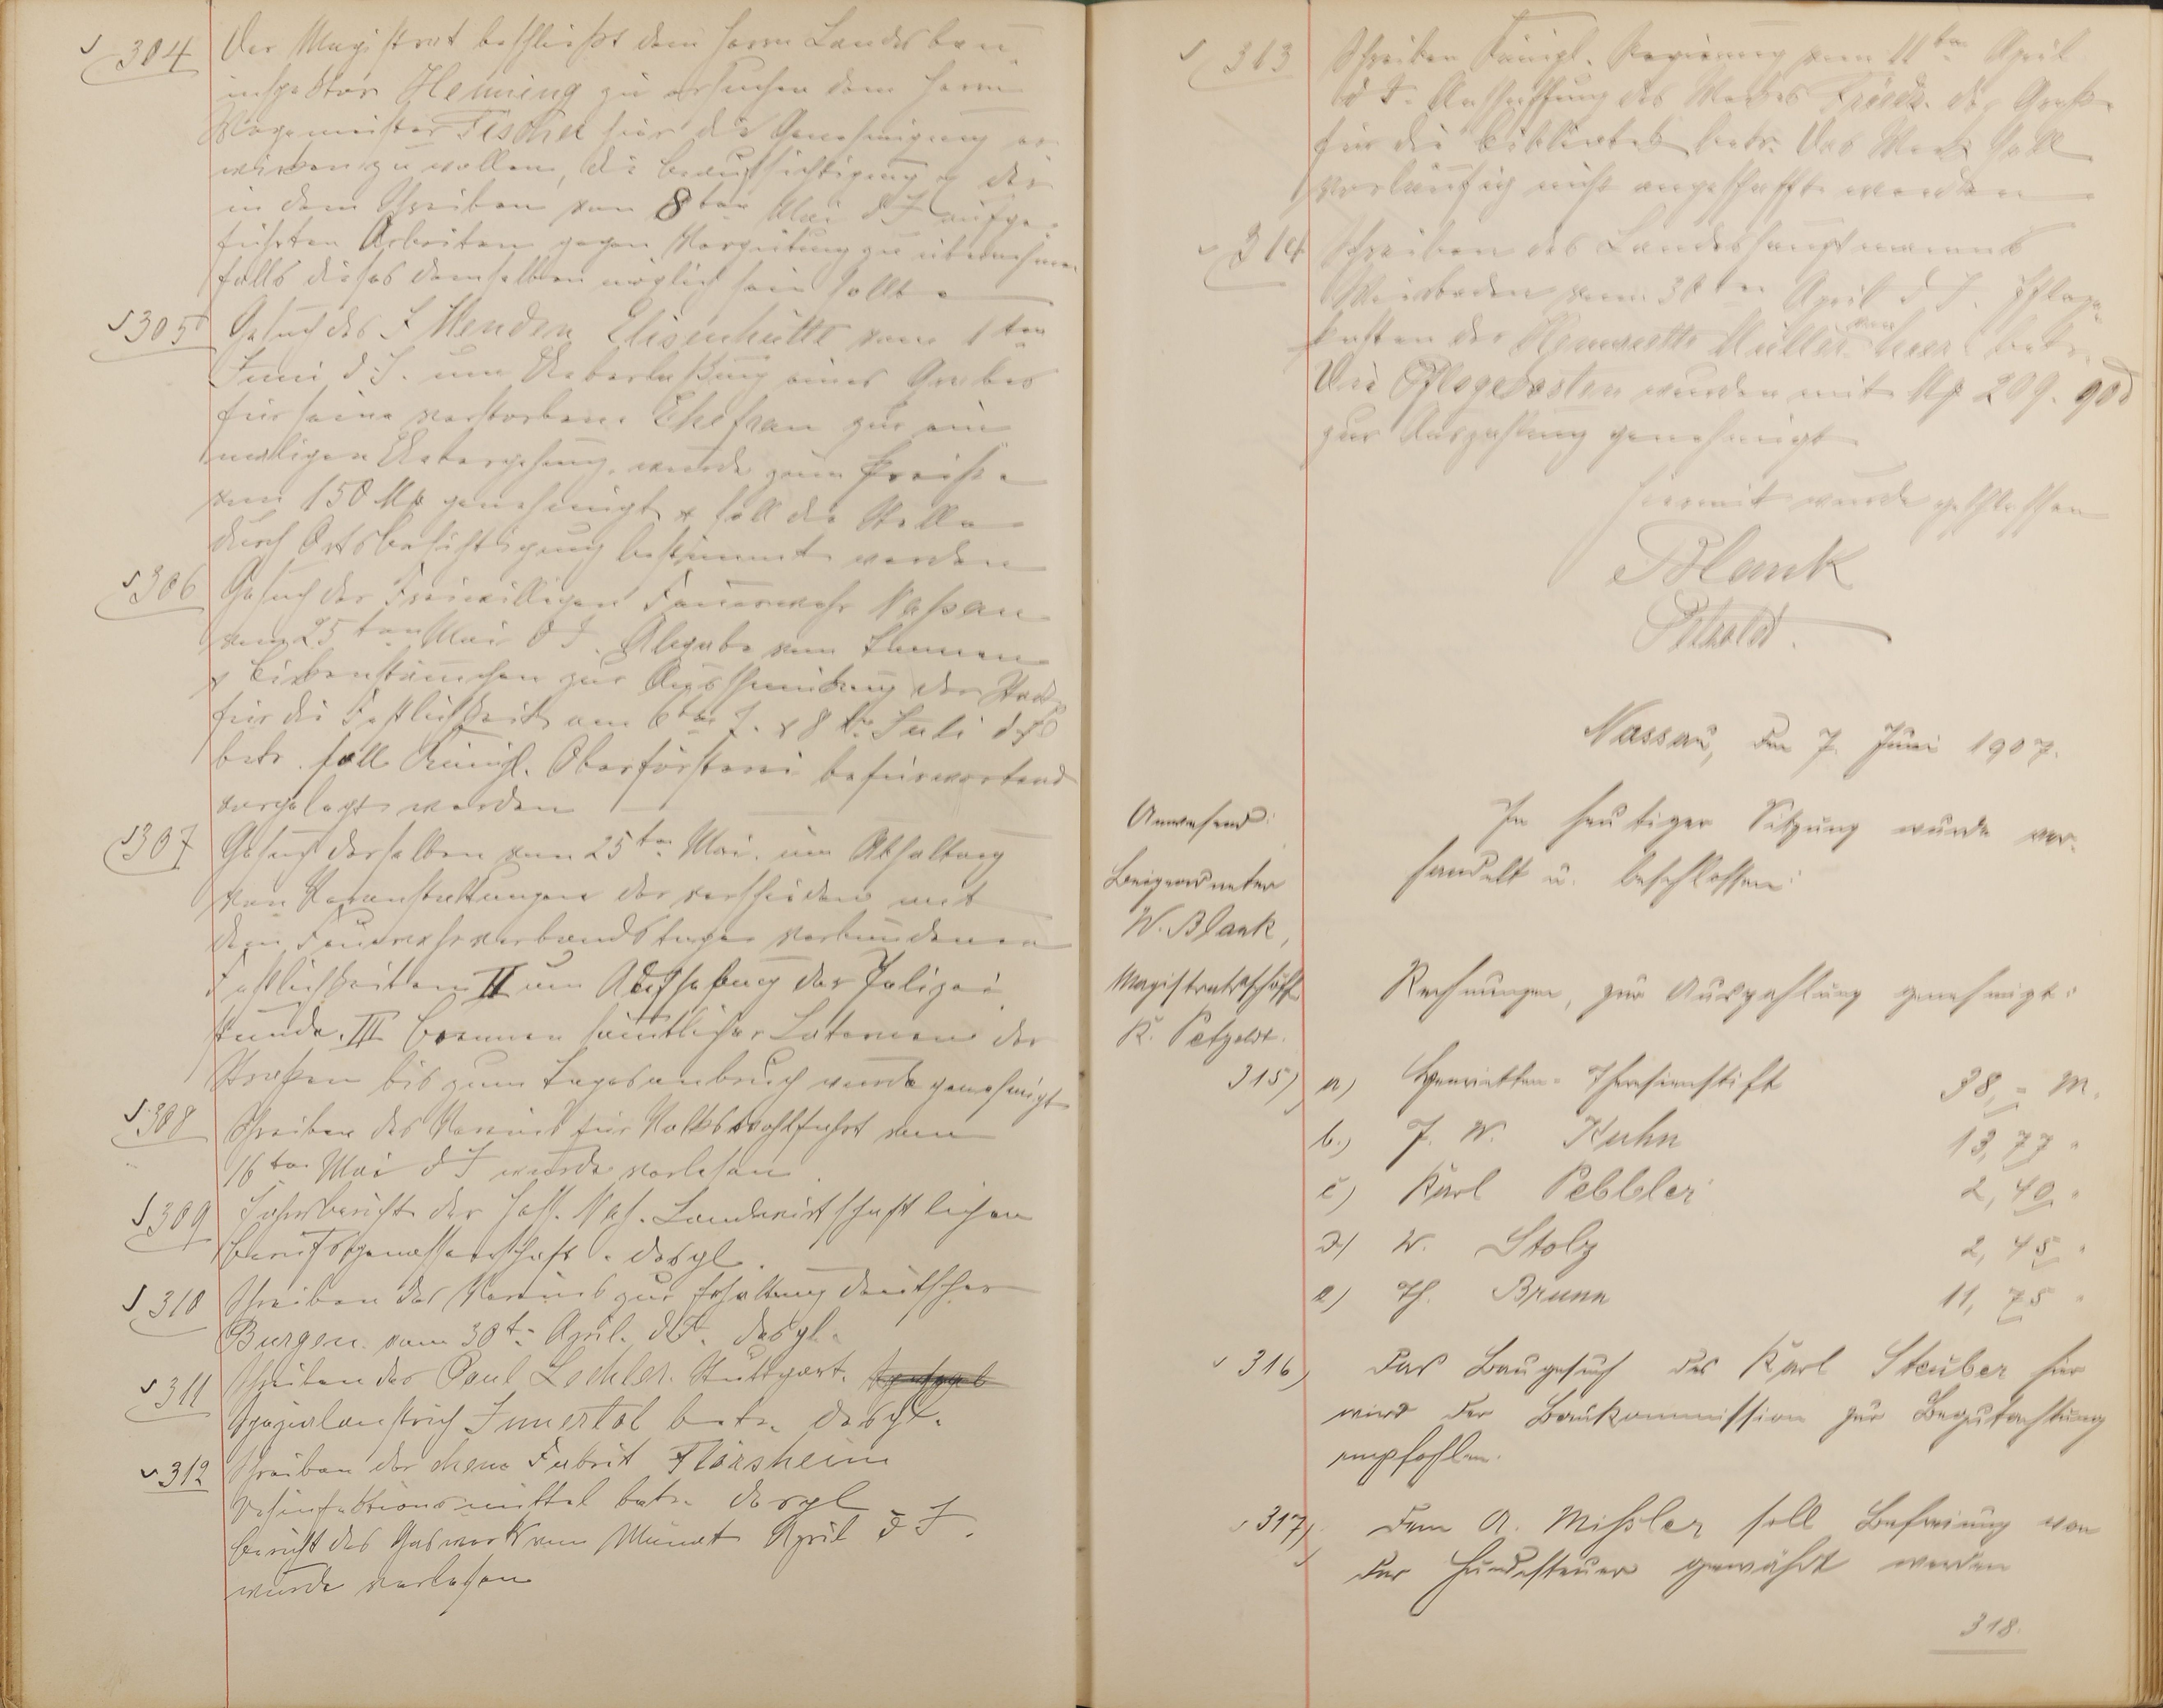 § 304 Der Magistrat beschließt dem Herrn Landesbau
inspektor Henning zu ersuchen dem Herrn
Wegemeister Fischer hier die Genehmigung er
wirken zu wollen, die Beaufsichtigung der
in dem Schreiben vom 8ten Mai d J aufge-
führten Arbeiten gegen Vergütung zu übernehmen
falls dieses demselben möglich sein sollte
§ 305 Gesuch des F Menden Elisenhütte vom 1ten
Juni d. J. um Ueberlaßung eines Grabes
für seine verstorbene Ehefrau zur ein
maligen Uebergehung, wurde zum Preise
von 150 Mk genehmigt & soll die Stelle
durch Ortsbesichtigung bestimmt werden
§ 306 Gesuch der Freiwilligen Feuerwehr Nassau
vom 25ten Mai d J. Abgabe von Tannen
& Birkenstämmchen zur Ausschmückung der Stadt
für die Festlichkeit am 6ten 7. & 8ten Juli d J
betr. soll Königl. Oberförsterei befürwortend
vorgelegt werden
§ 307 Gesuch derselben vom 25ten Mai. um Abhaltung
von Veranstaltungen der verschieden mit
dem Feuerwehrverbandstage verbundenen
Festlichkeiten II um Aufhebung der Polizei
stunde. III Brennen sämtlicher Laternen der
Straßen bis zum Tagesanbruch wurde genehmigt
§ 308 Schreiben des Vereins für Volkswohlfahrt vom
16ten Mai d J wurde verlesen
§ 309 Jahresbericht der Hess. Nass. Landwirtschaftlichen
Berufsgenossenschaft. desgl.
§ 310 Schreiben des Vereins zur Erhaltung deutscher
Burgen. vom 30t. April. d. J. desgl.
§ 311 Schreiben des Paul Lechler. Stuttgart.
Spezialanstrich Innertol betr. desgl.
§ 312 Schreiben der chem. Fabrik Flörsheim
Desinfektionsmittel betr. desgl
Bericht des Gaswerk vom Monat April d J.
wurde verlesen
§ 313 Schreiben Königl. Regierung vom 11ten April
d J. Anschaffung des Werkes Friedr. der Große
für die Bibliothek betr. Das Werk soll
vorläufig nicht angeschafft werden
§ 314 Schreiben des Landeshauptmanns
Wiesbaden vom 30ten April d J. Pflege-
kosten der Henriette Müller von hier betr.
Die Pflegekosten wurden mit Mk 209. 90
zur Auszahlung genehmigt
Hiermit wurde geschlossen
Blank
Petzoldt.
Nassau, den 7. Juni 1907.
Anwesend:
Beigeordneter
W. Blank,
Magistratsschöffe
K. Petzoldt.
In heutiger Sitzung wurde ver-
handelt u. beschlossen:
Rechnungen, zur Auszahlung genehmigt:
315) a) Henrietten-Theresienstift 38,- M.
b.) J. W. Kuhn 13,77 "
c) Karl Pebbler 2,40 "
d) W. Stolz 2,45 "
e) Th. Brunn 11,75 "
316) Das Baugesuch des Karl Steuber hier
wird der Baukommission zur Begutachtung
empfohlen.
317) Dem A. Mißler soll Befreiung von
der Hundesteuer gewährt werden
318.